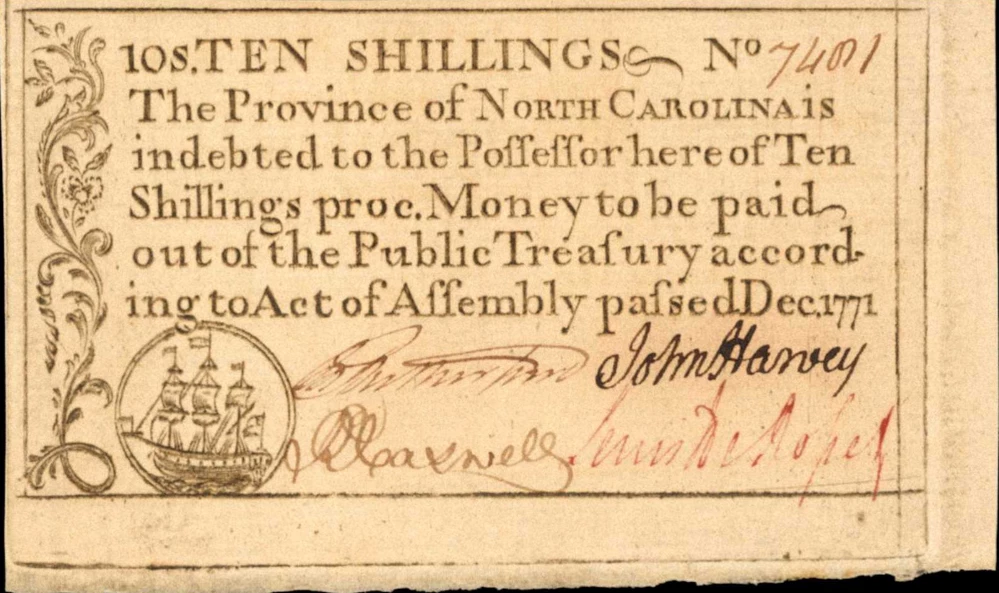 10S. TEN SHILLINGS Nº 7481
The Province of NORTH CAROLINA is
indebted to the Poſſeſſor here of Ten
Shillings proc. Money to be paid
out of the Public Treaſury accord-
ing to Act of Aſſembly paſsed Dec. 1771
John Harvey
RCaswell Lewis De Roſſet